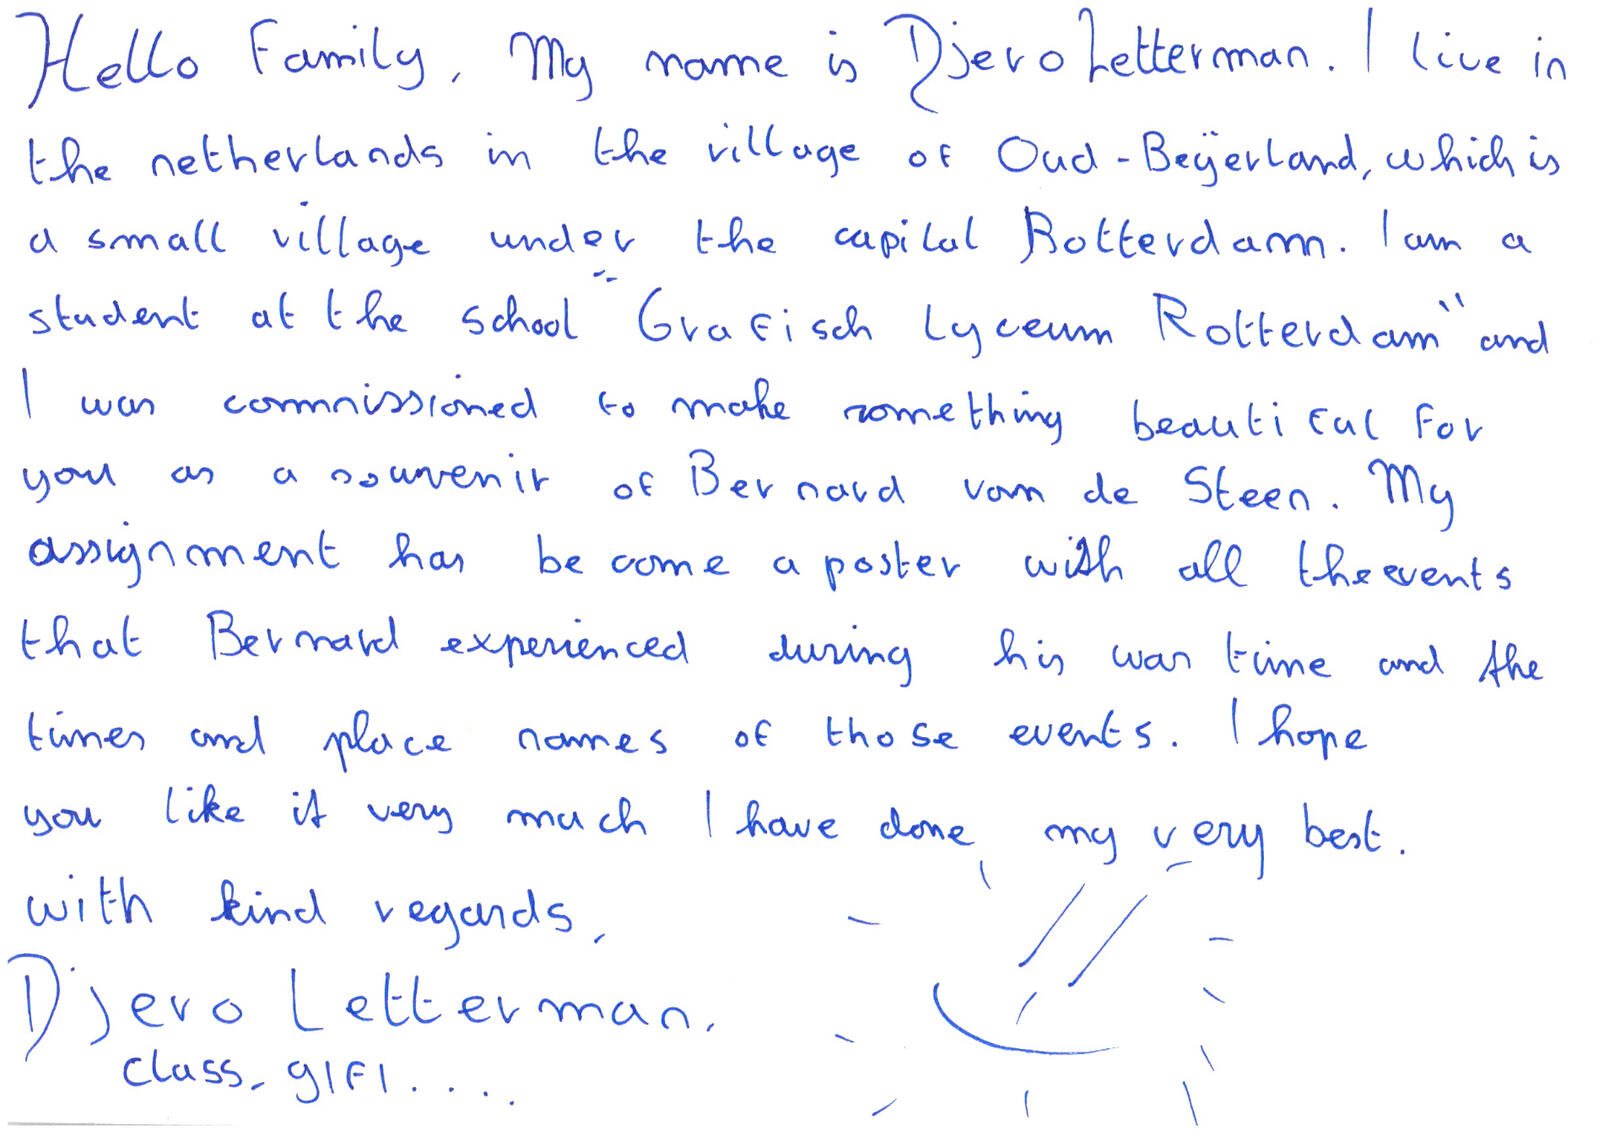 Hello Family, My name is Djero Letterman. I live in
the netherlands in the village of Oud-Beÿerland, which is
a small village under the capital Rotterdam. I am a
student at the school "Grafisch Lyceum Rotterdam" and
I was commissioned to make something beautiful for
you as a souvenir of Bernard van de Steen. My
assignment has become a poster with all the events
that Bernard experienced during his war time and the
times and place names of those events. I hope
you like it very much I have done my very best.
with kind regards,
Djero Letterman.
class, g1F1....